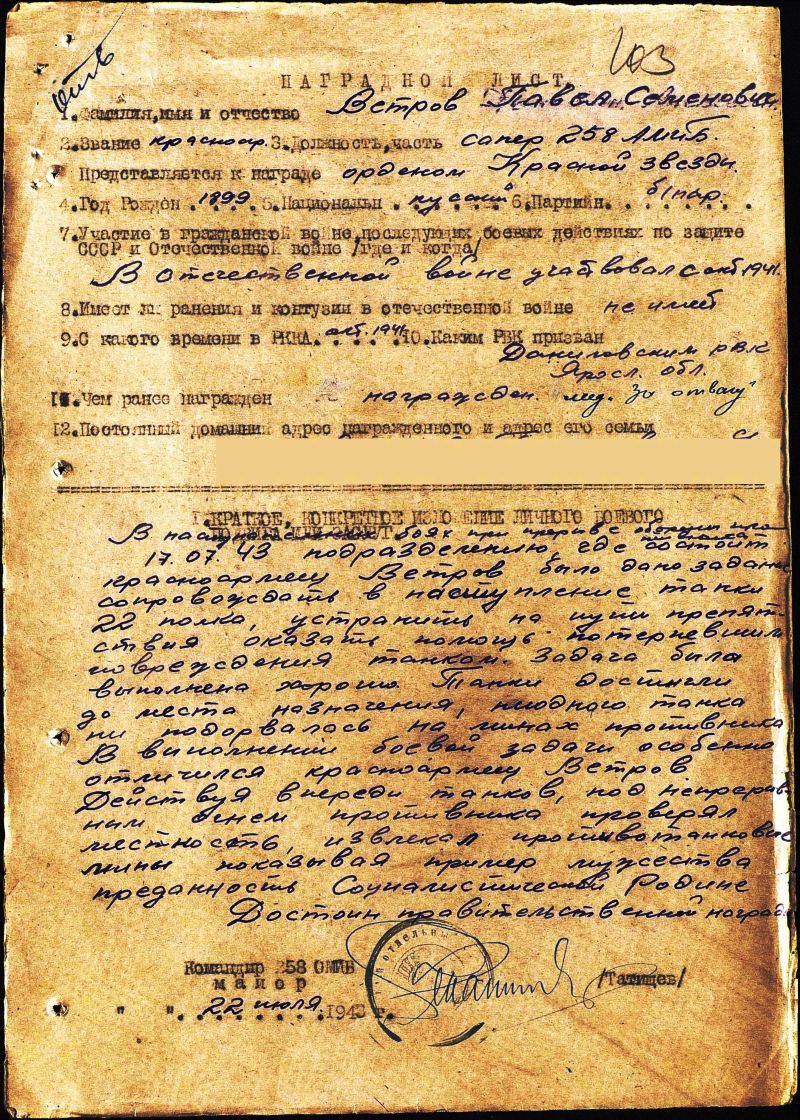 103
НАГРАДНОЙ ЛИСТ
1. Фамилия, имя и отчество Ветров Павел Семенович
2. Звание красноар. 3. Должность, часть сапер 258 ОМИБ.
Представляется к награде орденом Красной звезды.
4. Год Рожден. 1899. 5. Национальн. русский 6. Партийн. б/пар.
7. Участие в гражданской войне, последующих боевых действиях по защите
СССР и Отечественной войне /где и когда/
В отечественной войне участвовал с окт 1941.
8. Имеет ли ранения и контузии в отечественной войне не имеет
9. С какого времени в РККА. окт. 1941. 10. Каким РВК призван
Даниловским РВК
Яросл. обл.
11. Чем ранее награжден награжден. мед. "За отвагу"
12. Постоянный домашний адрес награжденного и адрес его семьи
I. КРАТКОЕ, КОНКРЕТНОЕ ИЗЛОЖЕНИЕ ЛИЧНОГО БОЕВОГО
В боях при прорыве обороны
17.07.43 подразделению, где состоит
красноармеец Ветров было дано задание
сопровождать в наступление танки
22 полка, устранить на пути препят-
ствия оказать помощь потерпевшим
повреждения танкам. Задача была
выполнена хорошо. Танки достигли
до места назначения, ниодного танка
ни подорвалась на минах противника
В выполнении боевой задачи особенно
отличился красноармеец Ветров
Действуя впереди танков, под непрерыв-
ным огнем противника проверял
местность, извлекал противотанковые
мины показывая пример мужества
преданность Социалистической Родине
Достоин правительственной награды
Командир 258 ОМИБ
майор /Татищев/
" " 22 июля 1943 г.